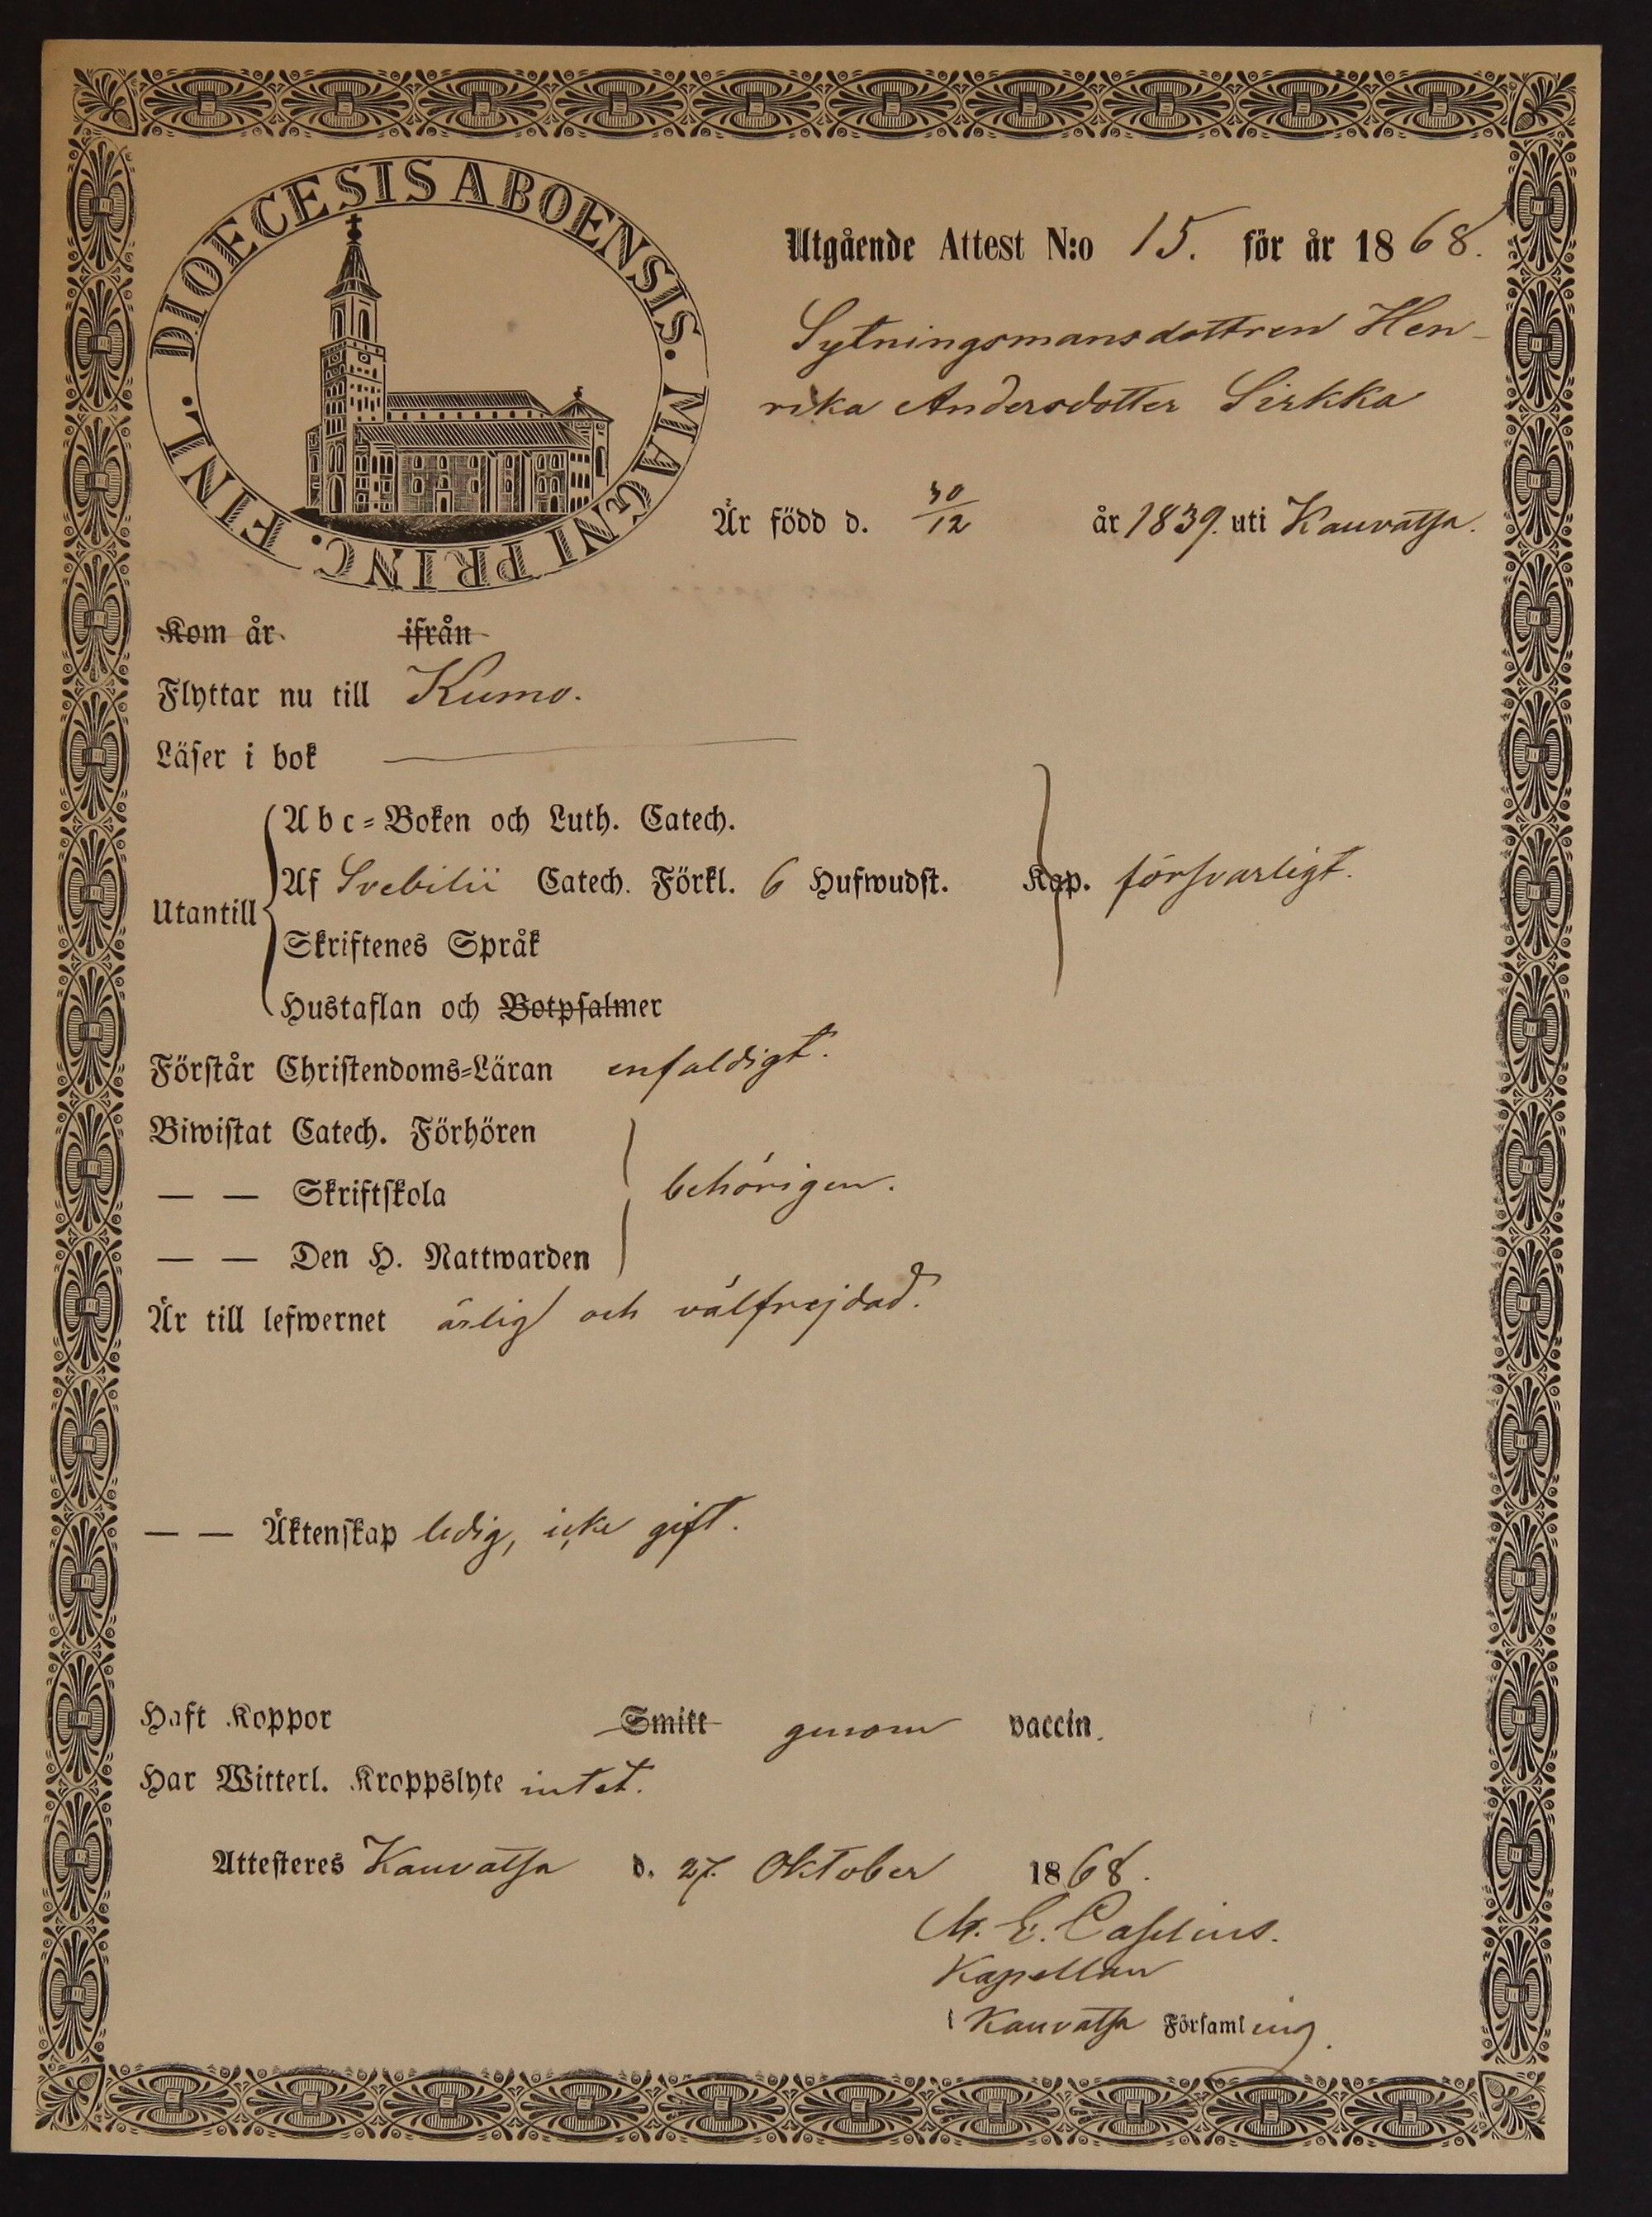 DIOECESIS ABOENSIS. MAGNI PRINC. FINL.
Utgående Attest N:o 15. för år 1868.
Sytningsmansdottren Hen-
rika Andersdotter Sirkka
Är född d. 30/12 år 1839. uti Kauvatsa.
Kom år ifrån
Flyttar nu till Kumo.
Läser i bok
Utantill
Abc-Boken och Luth. Catech.
Af Svebilii Catech. Förkl. 6 Hufwudst. Kap. försvarligt.
Skriftenes Språk
Hustaflan och Botpsalmer
Förstår Christendoms-Läran enfaldigt.
Biwistat Catech. Förhören
— — Skriftskola behörigen.
— — Den H. Nattwarden
Är till lefwernet ärlig och välfrejdad.
— — Äktenskap ledig, icke gift.
Haft Koppor Smitt genom vaccin.
Har Witterl. Kroppslyte intet.
Attesteres Kauvatsa d. 27. Oktober 1868.
M. E. Caselius.
Kapellan
i Kauvatsa Församling.